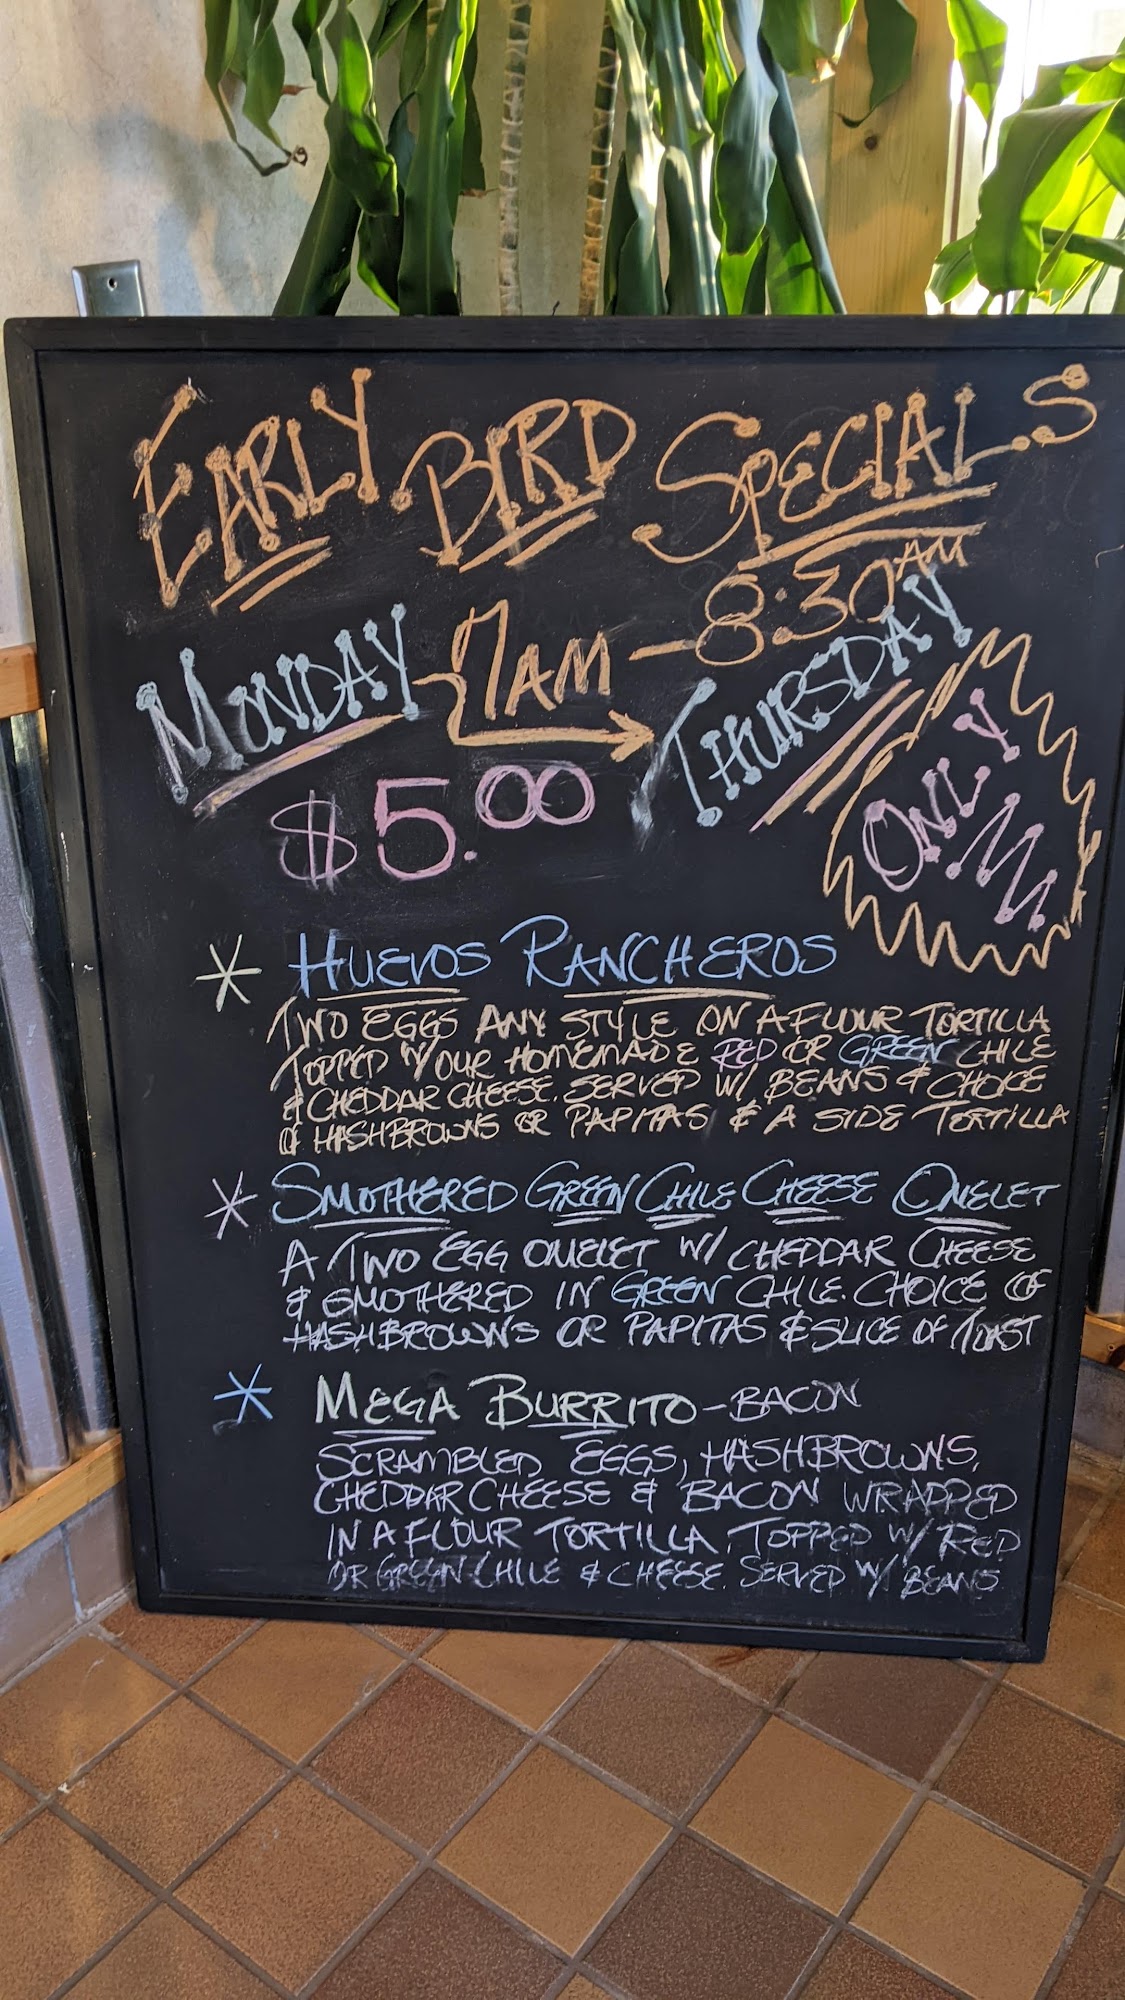 EARLY BIRD SPECIALS
MONDAY 7AM - 8:30AM THURSDAY
$5.00
ONLY
* HUEVOS RANCHEROS
TWO EGGS ANY STYLE ON A FLOUR TORTILLA
TOPPED W/ OUR HOMEMADE RED OR GREEN CHILE
& CHEDDAR CHEESE. SERVED W/ BEANS & CHOICE
OF HASHBROWNS OR PAPITAS & A SIDE TORTILLA
* SMOTHERED GREEN CHILE CHEESE OMELET
A TWO EGG OMELET W/ CHEDDAR CHEESE
& SMOTHERED IN GREEN CHILE. CHOICE OF
HASHBROWNS OR PAPITAS & SLICE OF TOAST
* MEGA BURRITO - BACON
SCRAMBLED EGGS, HASHBROWNS,
CHEDDAR CHEESE & BACON WRAPPED
IN A FLOUR TORTILLA. TOPPED W/ RED
OR GREEN CHILE & CHEESE. SERVED W/ BEANS